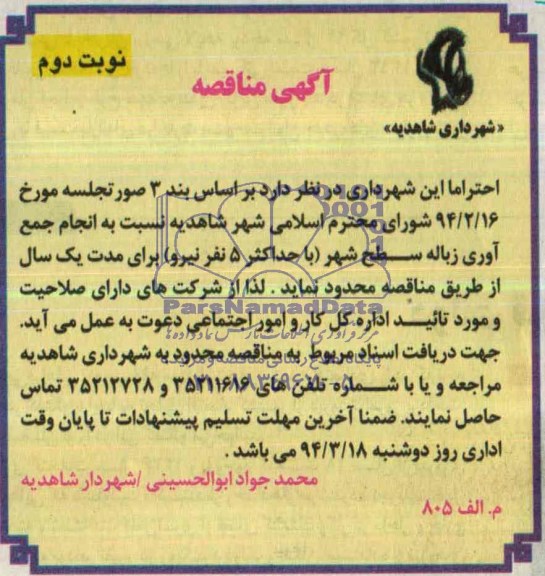 نوبت دوم
آگهی مناقصه
«شهرداری شاهدیه»
احتراما این شهرداری در نظر دارد بر اساس بند ۳ صورتجلسه مورخ
۹۴/۲/۱۶ شورای محترم اسلامی شهر شاهدیه نسبت به انجام جمع
آوری زباله سطح شهر (با حداکثر ۵ نفر نیرو) برای مدت یک سال
از طریق مناقصه محدود نماید . لذا از شرکت های دارای صلاحیت
ParsNamadData
و مورد تائید اداره کل کار و امور اجتماعی دعوت به عمل می آید.
جهت دریافت اسناد مربوط به مناقصه محدود به شهرداری شاهدیه
مراجعه و یا با شماره تلفن های ۳۵۲۱۱۶۱۶ و ۳۵۲۱۲۷۲۸ تماس
حاصل نمایند. ضمنا آخرین مهلت تسلیم پیشنهادات تا پایان وقت
اداری روز دوشنبه ۹۴/۳/۱۸ می باشد .
محمد جواد ابوالحسینی /شهردار شاهدیه
م. الف ۸۰۵